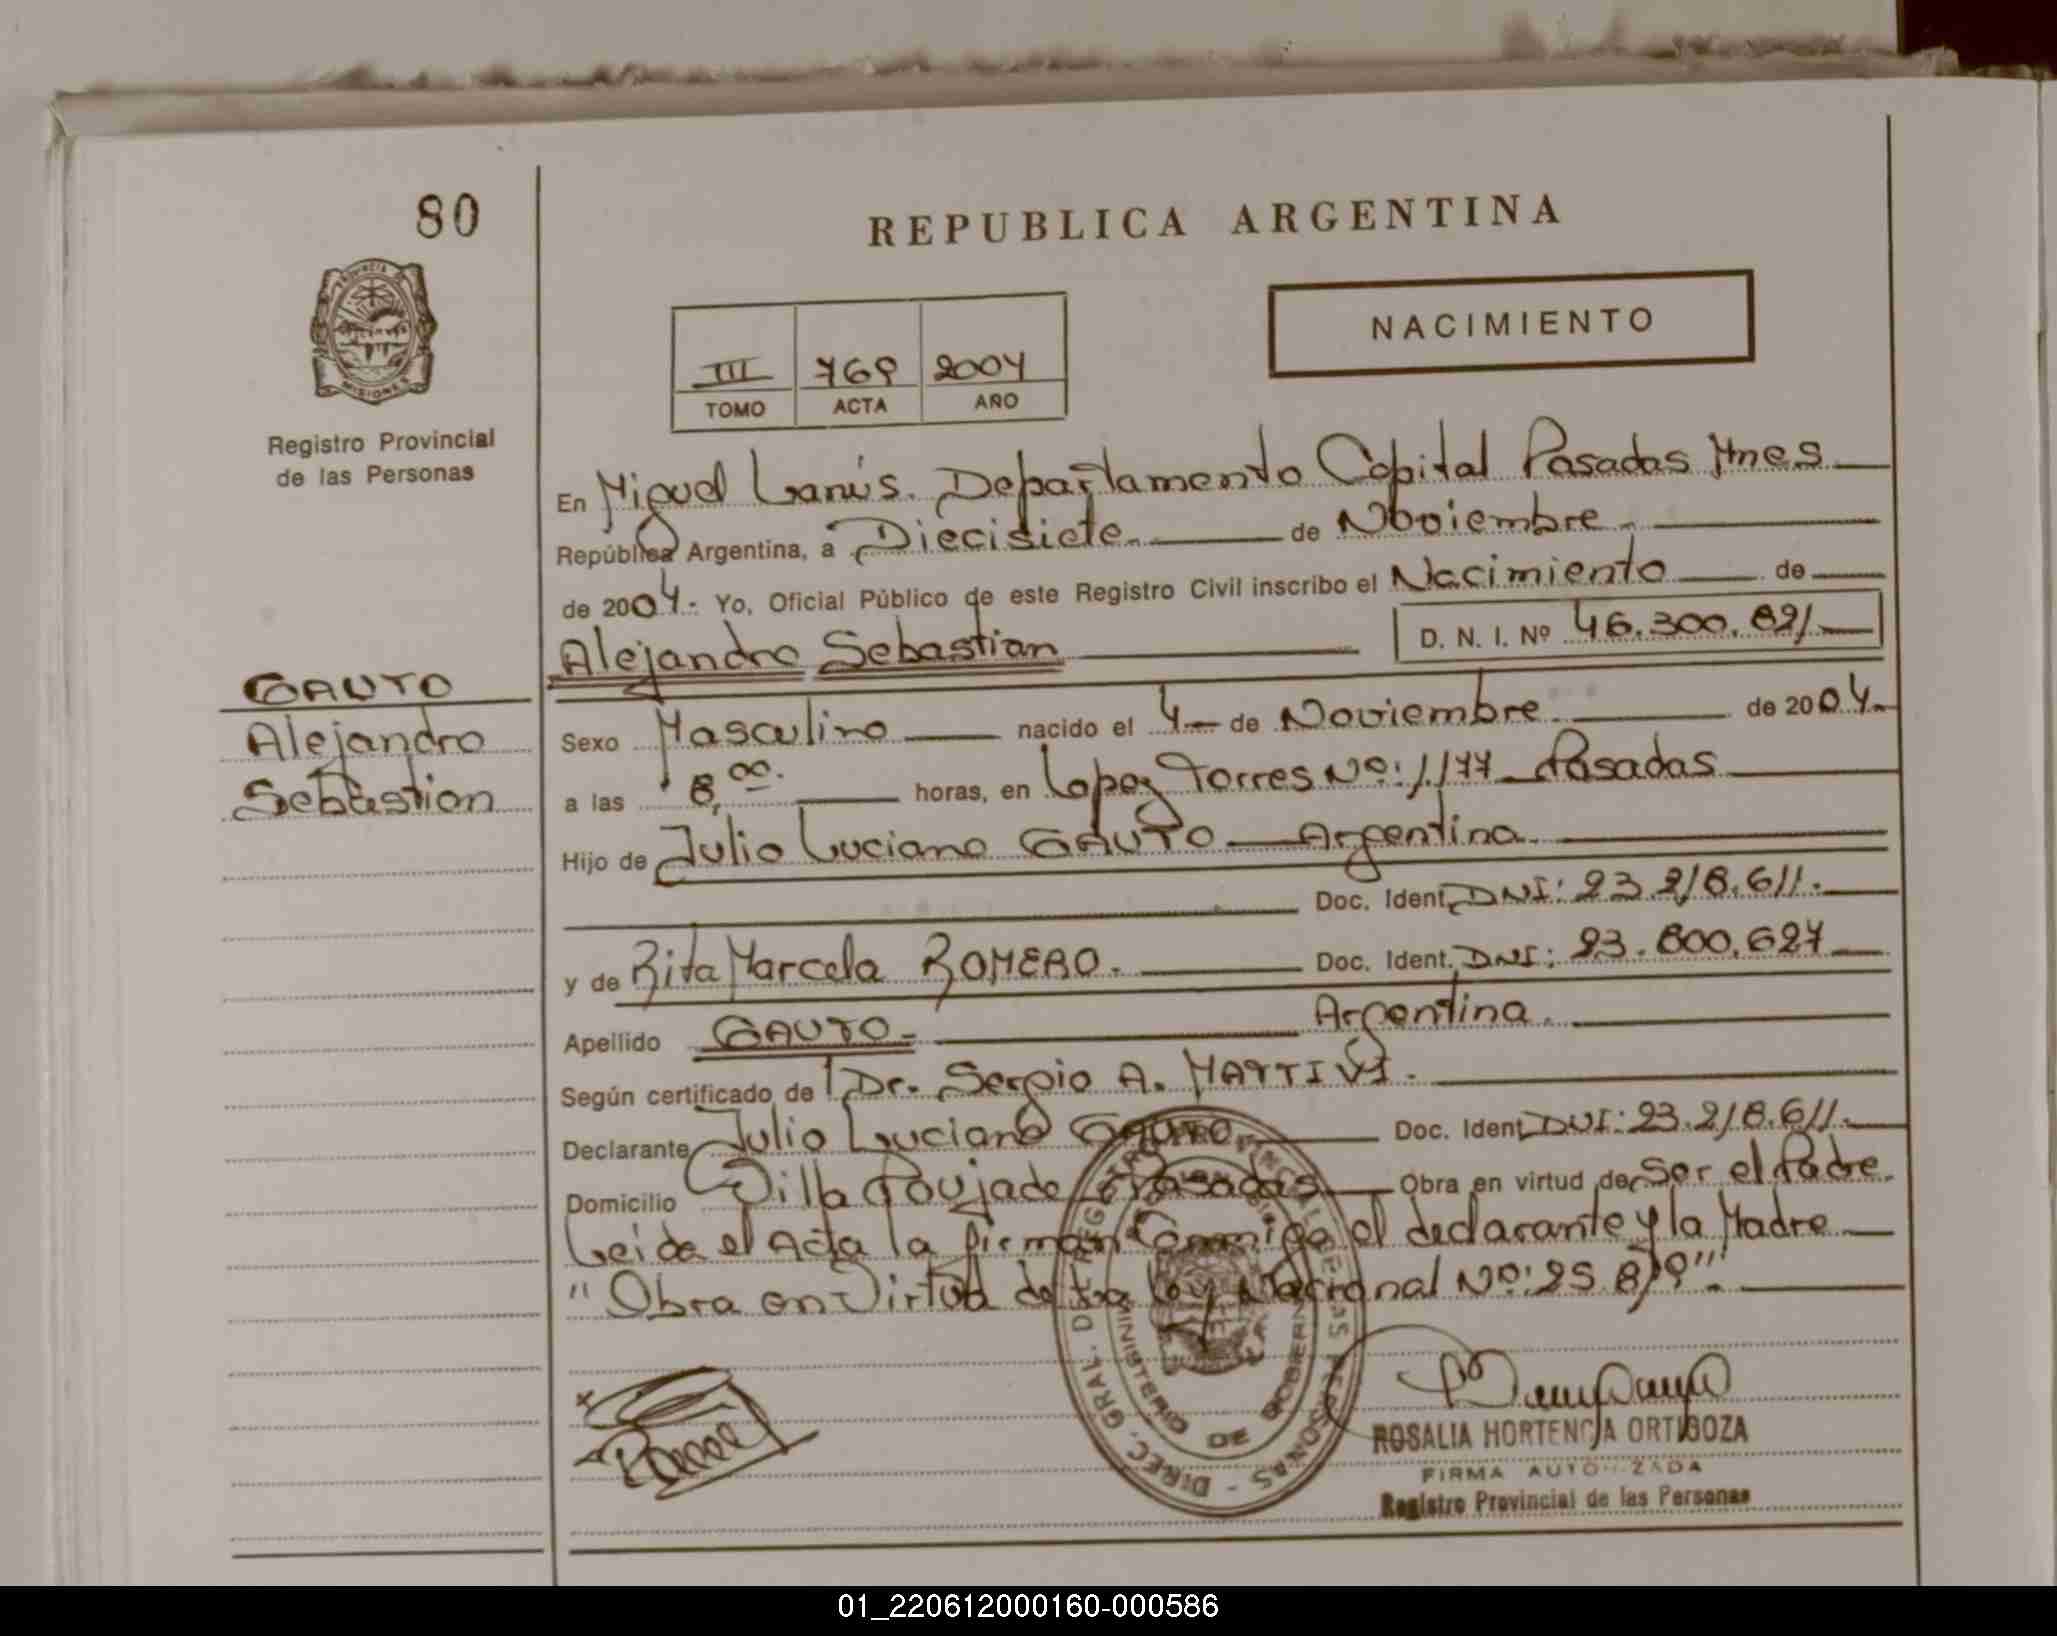 80
REPUBLICA ARGENTINA
PROVINCIA DE
MISIONES
NACIMIENTO
III 769 2004
TOMO ACTA AÑO
Registro Provincial
de las Personas
En Miguel Lanús. Departamento Capital Posadas Mnes
República Argentina, a Diecisiete. de Noviembre.
de 2004.- Yo, Oficial Público de este Registro Civil inscribo el Nacimiento de
Alejandro Sebastian D. N. I. Nº 46.300.821
GAUTO
Alejandro
Sebastian
Sexo Masculino nacido el 4 de Noviembre. de 2004.
a las 8,00. horas, en Lopez Torres Nº: 1.177 Posadas
Hijo de Julio Luciano GAUTO Argentina.
Doc. Ident. DNI: 23.218.611.
y de Rita Marcela ROMERO. Doc. Ident. DNI: 23.800.627
Argentina.
Apellido GAUTO.
Según certificado de Dr. Sergio A.
Declarante Julio Luciano GAUTO Doc. Ident. DNI: 23.218.611.
Domicilio Villa Poujade Posadas Obra en virtud de Ser el Padre.
Leida el Acta la firman Conmigo el declarante y la Madre
"Obra en Virtud de la ley Nacional Nº: 25.819".
DIREC. GRAL. DE REGISTRO PROVINCIAL DE LAS PERSONAS
MINISTERIO DE GOBIERNO
ROSALIA HORTENCIA ORTIGOZA
FIRMA AUTORIZADA
Registro Provincial de las Personas
01_220612000160-000586